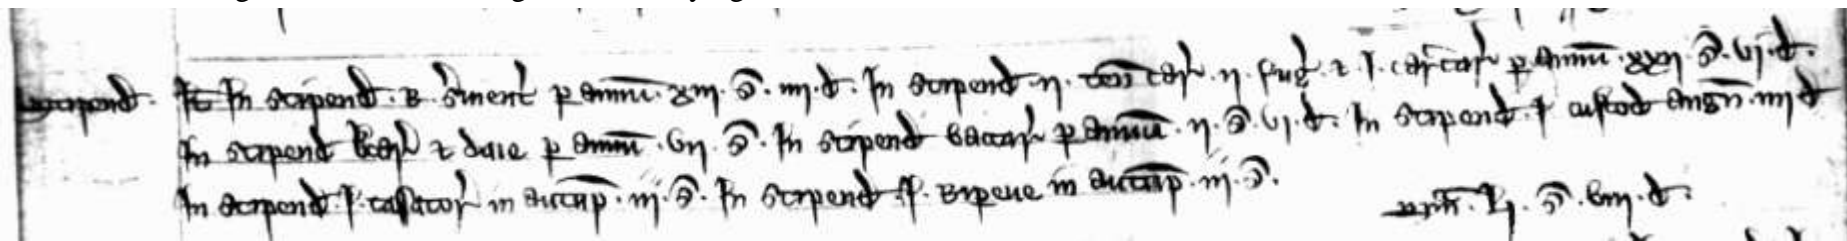 Stipend. It In stipend. B. s'uient' p annu. xiii. s. iiii. d. In stipend. ii. car'. ii. fug'. 7. i. carectar' p annu. xxii. s. vi. d.
In stipend 7 daie p annu. vii. s. In stipend vaccar' p annu. ii. s. vi. d. In stipend. i custod agn. iiii d
In stipend. i. in autup. iii. s. In stipend. i. Ripeue in autup. iii. s. sm. Li. s. viii. d.